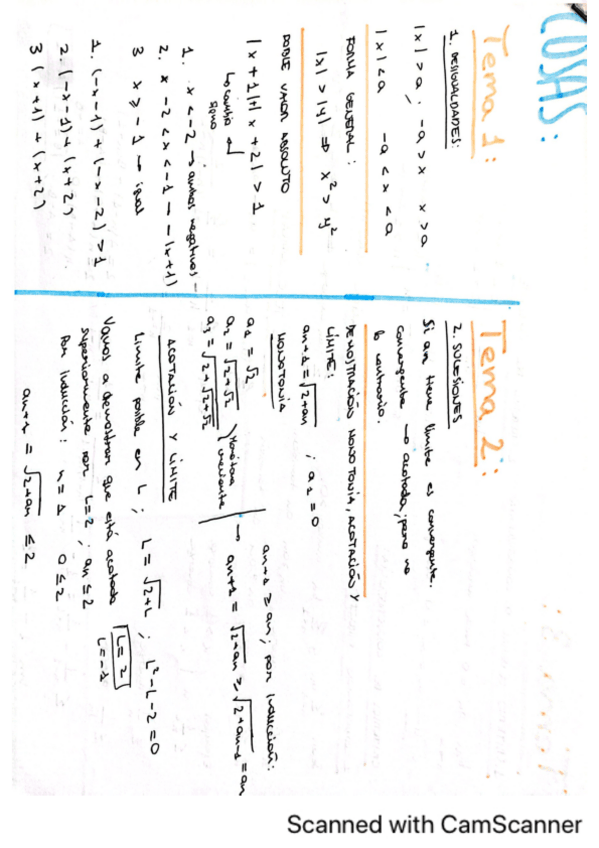 COSAS:
Tema 1:
1. DESIGUALDADES:
|x| > a ; -a > x   x > a
|x| < a   -a < x < a
FORMA GENERAL:
|x| > |y| ⇒ x² > y²
DOBLE VALOR ABSOLUTO
|x+1| + |x+2| > 1
↳ cambio signo ↲
1. x < -2 → ambos negativos -
2. x -2 < x < -1 → -(x+1)
3 x > -1 → igual
1. (-x-1) + (-x-2) > 1
2. (-x-1) + (x+2)
3 (x+1) + (x+2)
Tema 2:
2. SUCESIONES
Si an tiene límite es convergente.
convergente → acotada, pero no
lo contrario.
DEMOSTRACIÓN MONOTONÍA, ACOTACIÓN Y
LÍMITE:
an+1 = √2+an ; a1 = 0
MONOTONIA
a1 = √2
a2 = √2+√2
a3 = √2+√2+√2
Monótona creciente
an+1 ≥ an ; por inducción:
→ an+1 = √2+an ≥ √2+an-1 = an
ACOTACIÓN Y LÍMITE
Límite posible en L ; L = √2+L ; L²-L-2=0
L=2
L=-1
Vamos a demostrar que está acotada
superiormente por L=2 ; an ≤ 2
Por inducción: n=1   0 ≤ 2
an+1 = √2+an ≤ 2
Scanned with CamScanner